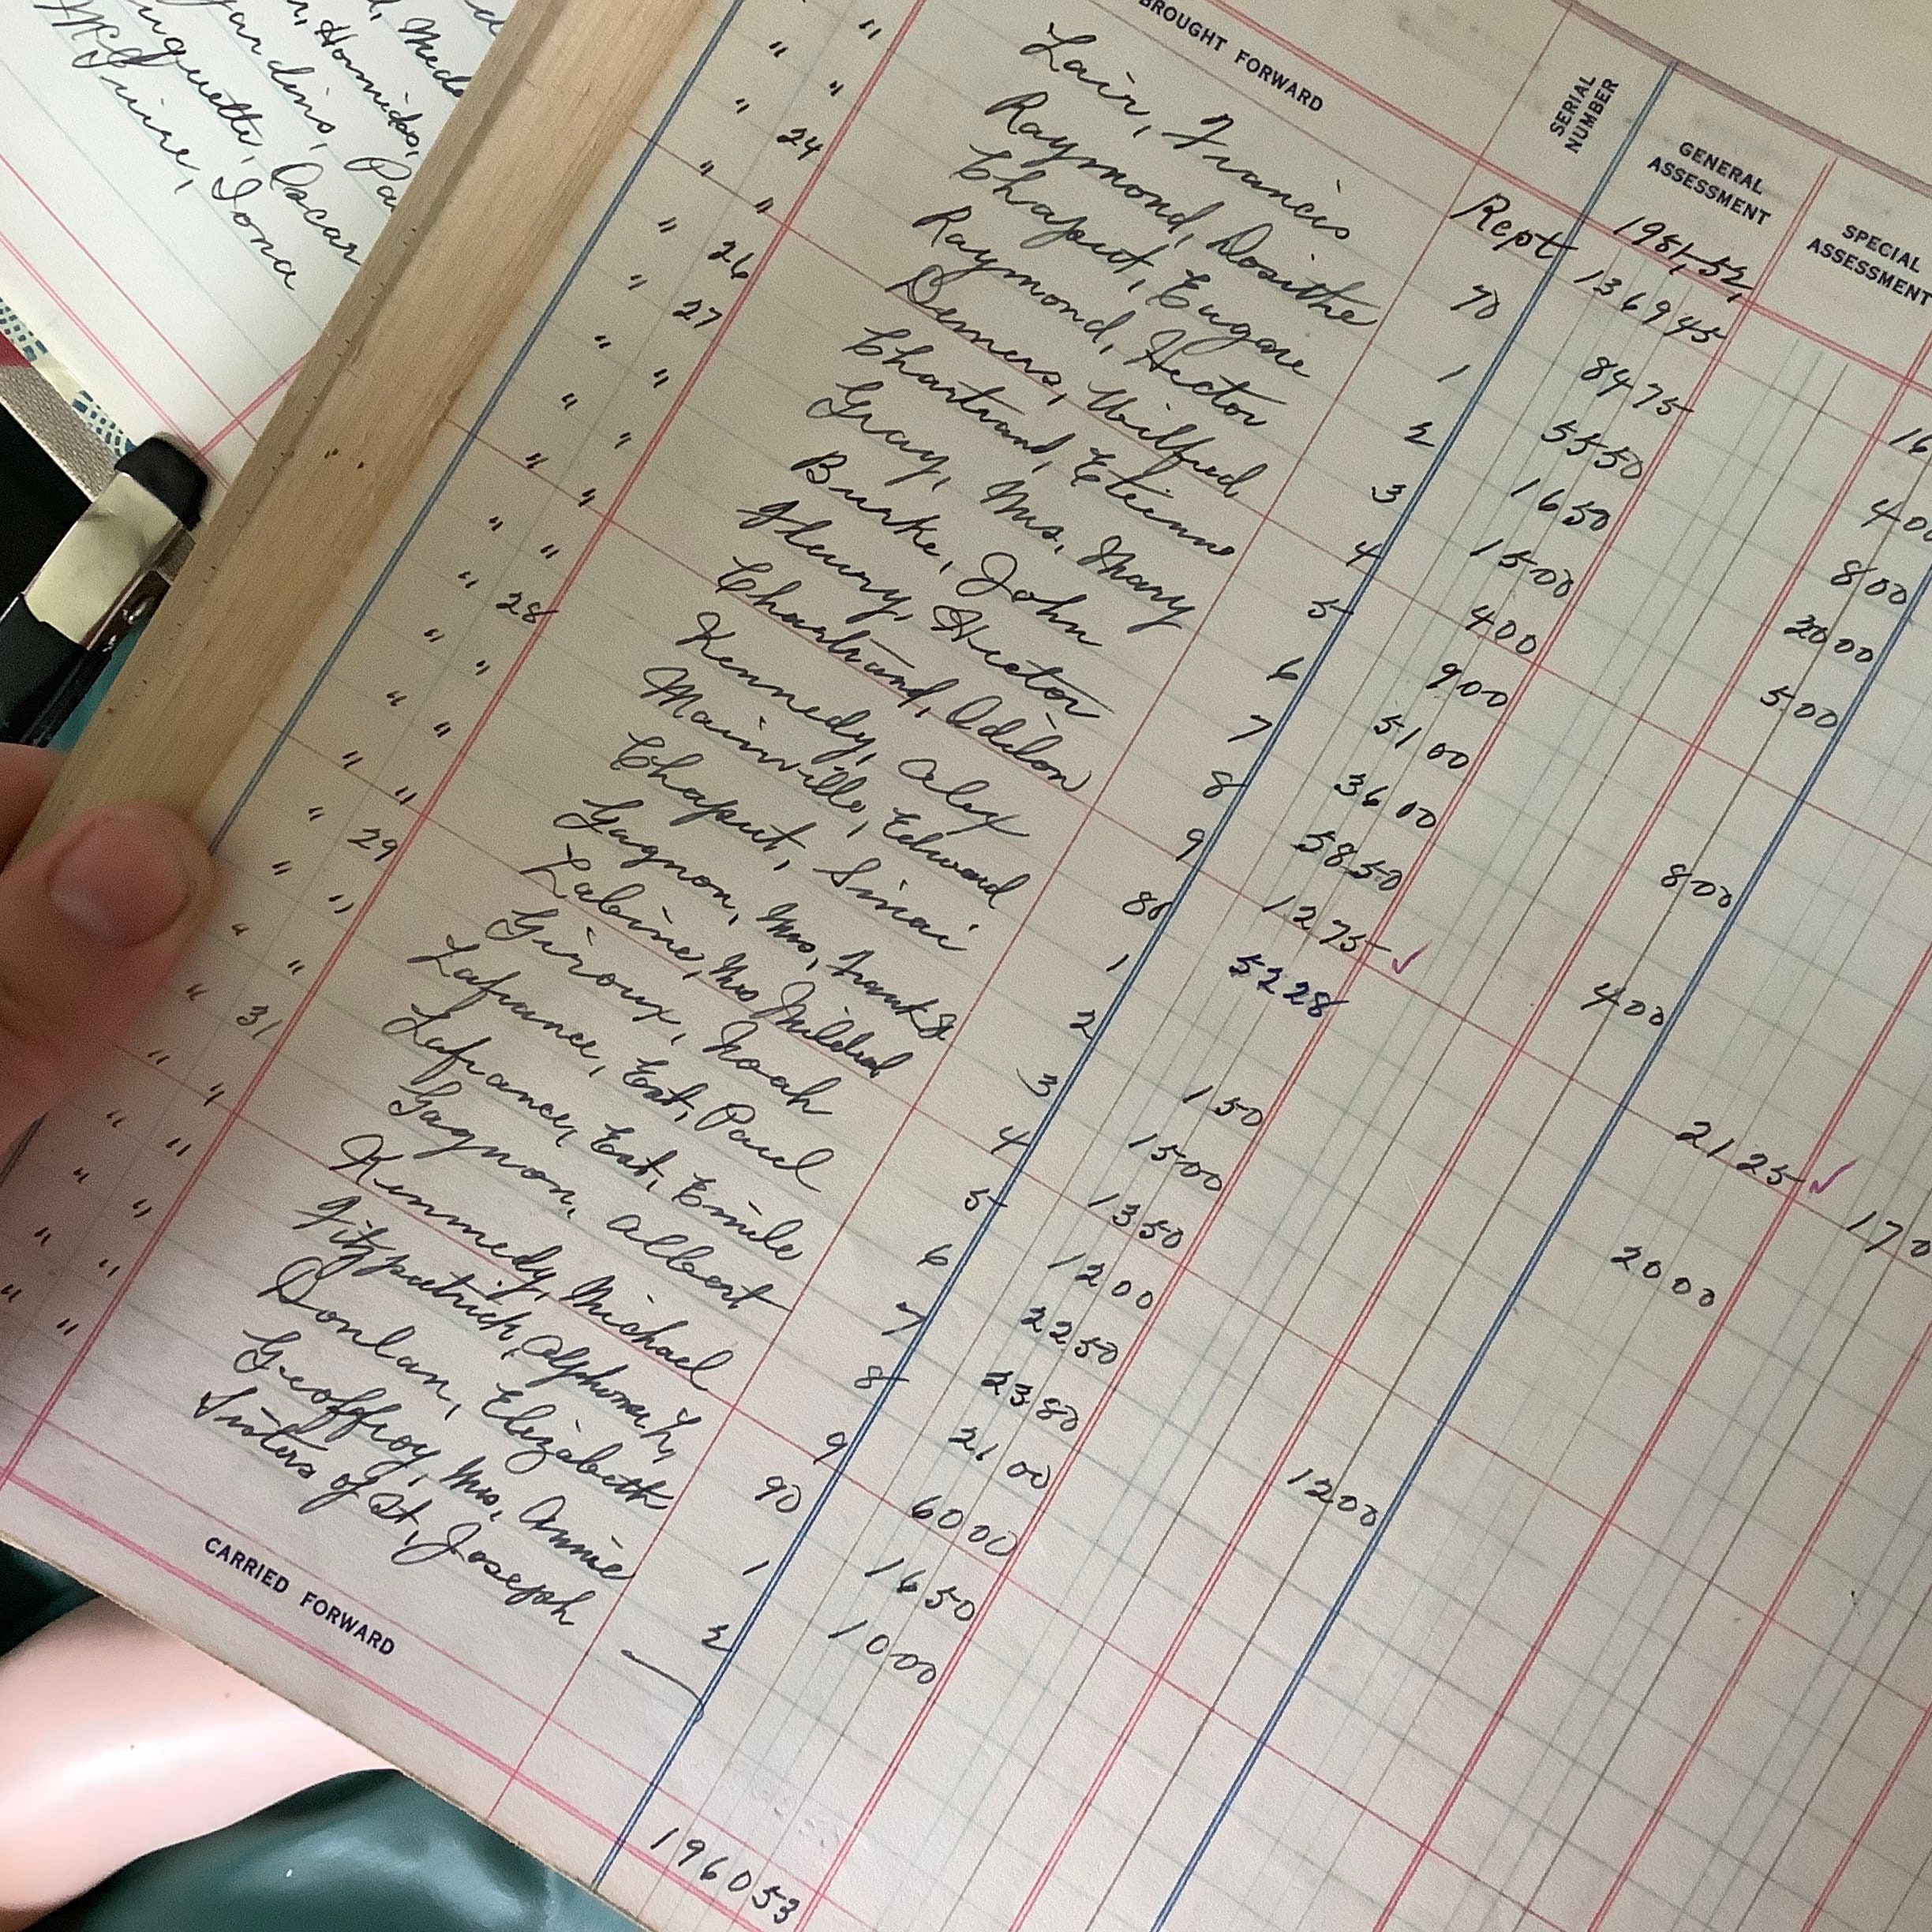 Homidas,
Oscar
McGuire, Iona
BROUGHT FORWARD
SERIAL NUMBER
GENERAL ASSESSMENT
SPECIAL ASSESSMENT
Rept 136945
" " Lair, Francis 70 8475
" " Raymond, Dosithe 1 5550 400
" 24 Chaput, Eugene 2 1650 800
" " Raymond, Hector 3 1500 2000
" 26 Demers, Wilfred 4 400 500
" 27 Chartrand, Etienne 5 900
" " Gray, Mrs. Mary 6 5100
" " Burke, John 7 3600 800
" " Fleury, Hector 8 5850
" " Chartrand, Odilon 9 1275 ✓ 400
" 28 Kennedy, Alex 80 5228
" " Mainville, Edward 1
" " Chaput, Sinai 2 150 2125 ✓
" " Gagnon, Mrs, Frank 3 1500 170
" 29 Labine, Mrs Mildred 4 1350 2000
" " Giroux, Noah 5 1200
" " Lafrance, Est, Paul 6 2250
" 31 Lafrance, Est, Emile 7 2380
" " Gagnon, Albert 8 2100 1200
" " Kennedy, Michael 9 6000
" " Fitzpatrick, Alphonse L, 90 1650
" " Donlan, Elizabeth 1 1000
" " Geoffroy, Mrs, Annie 2
Sisters of St, Joseph —
CARRIED FORWARD
196053